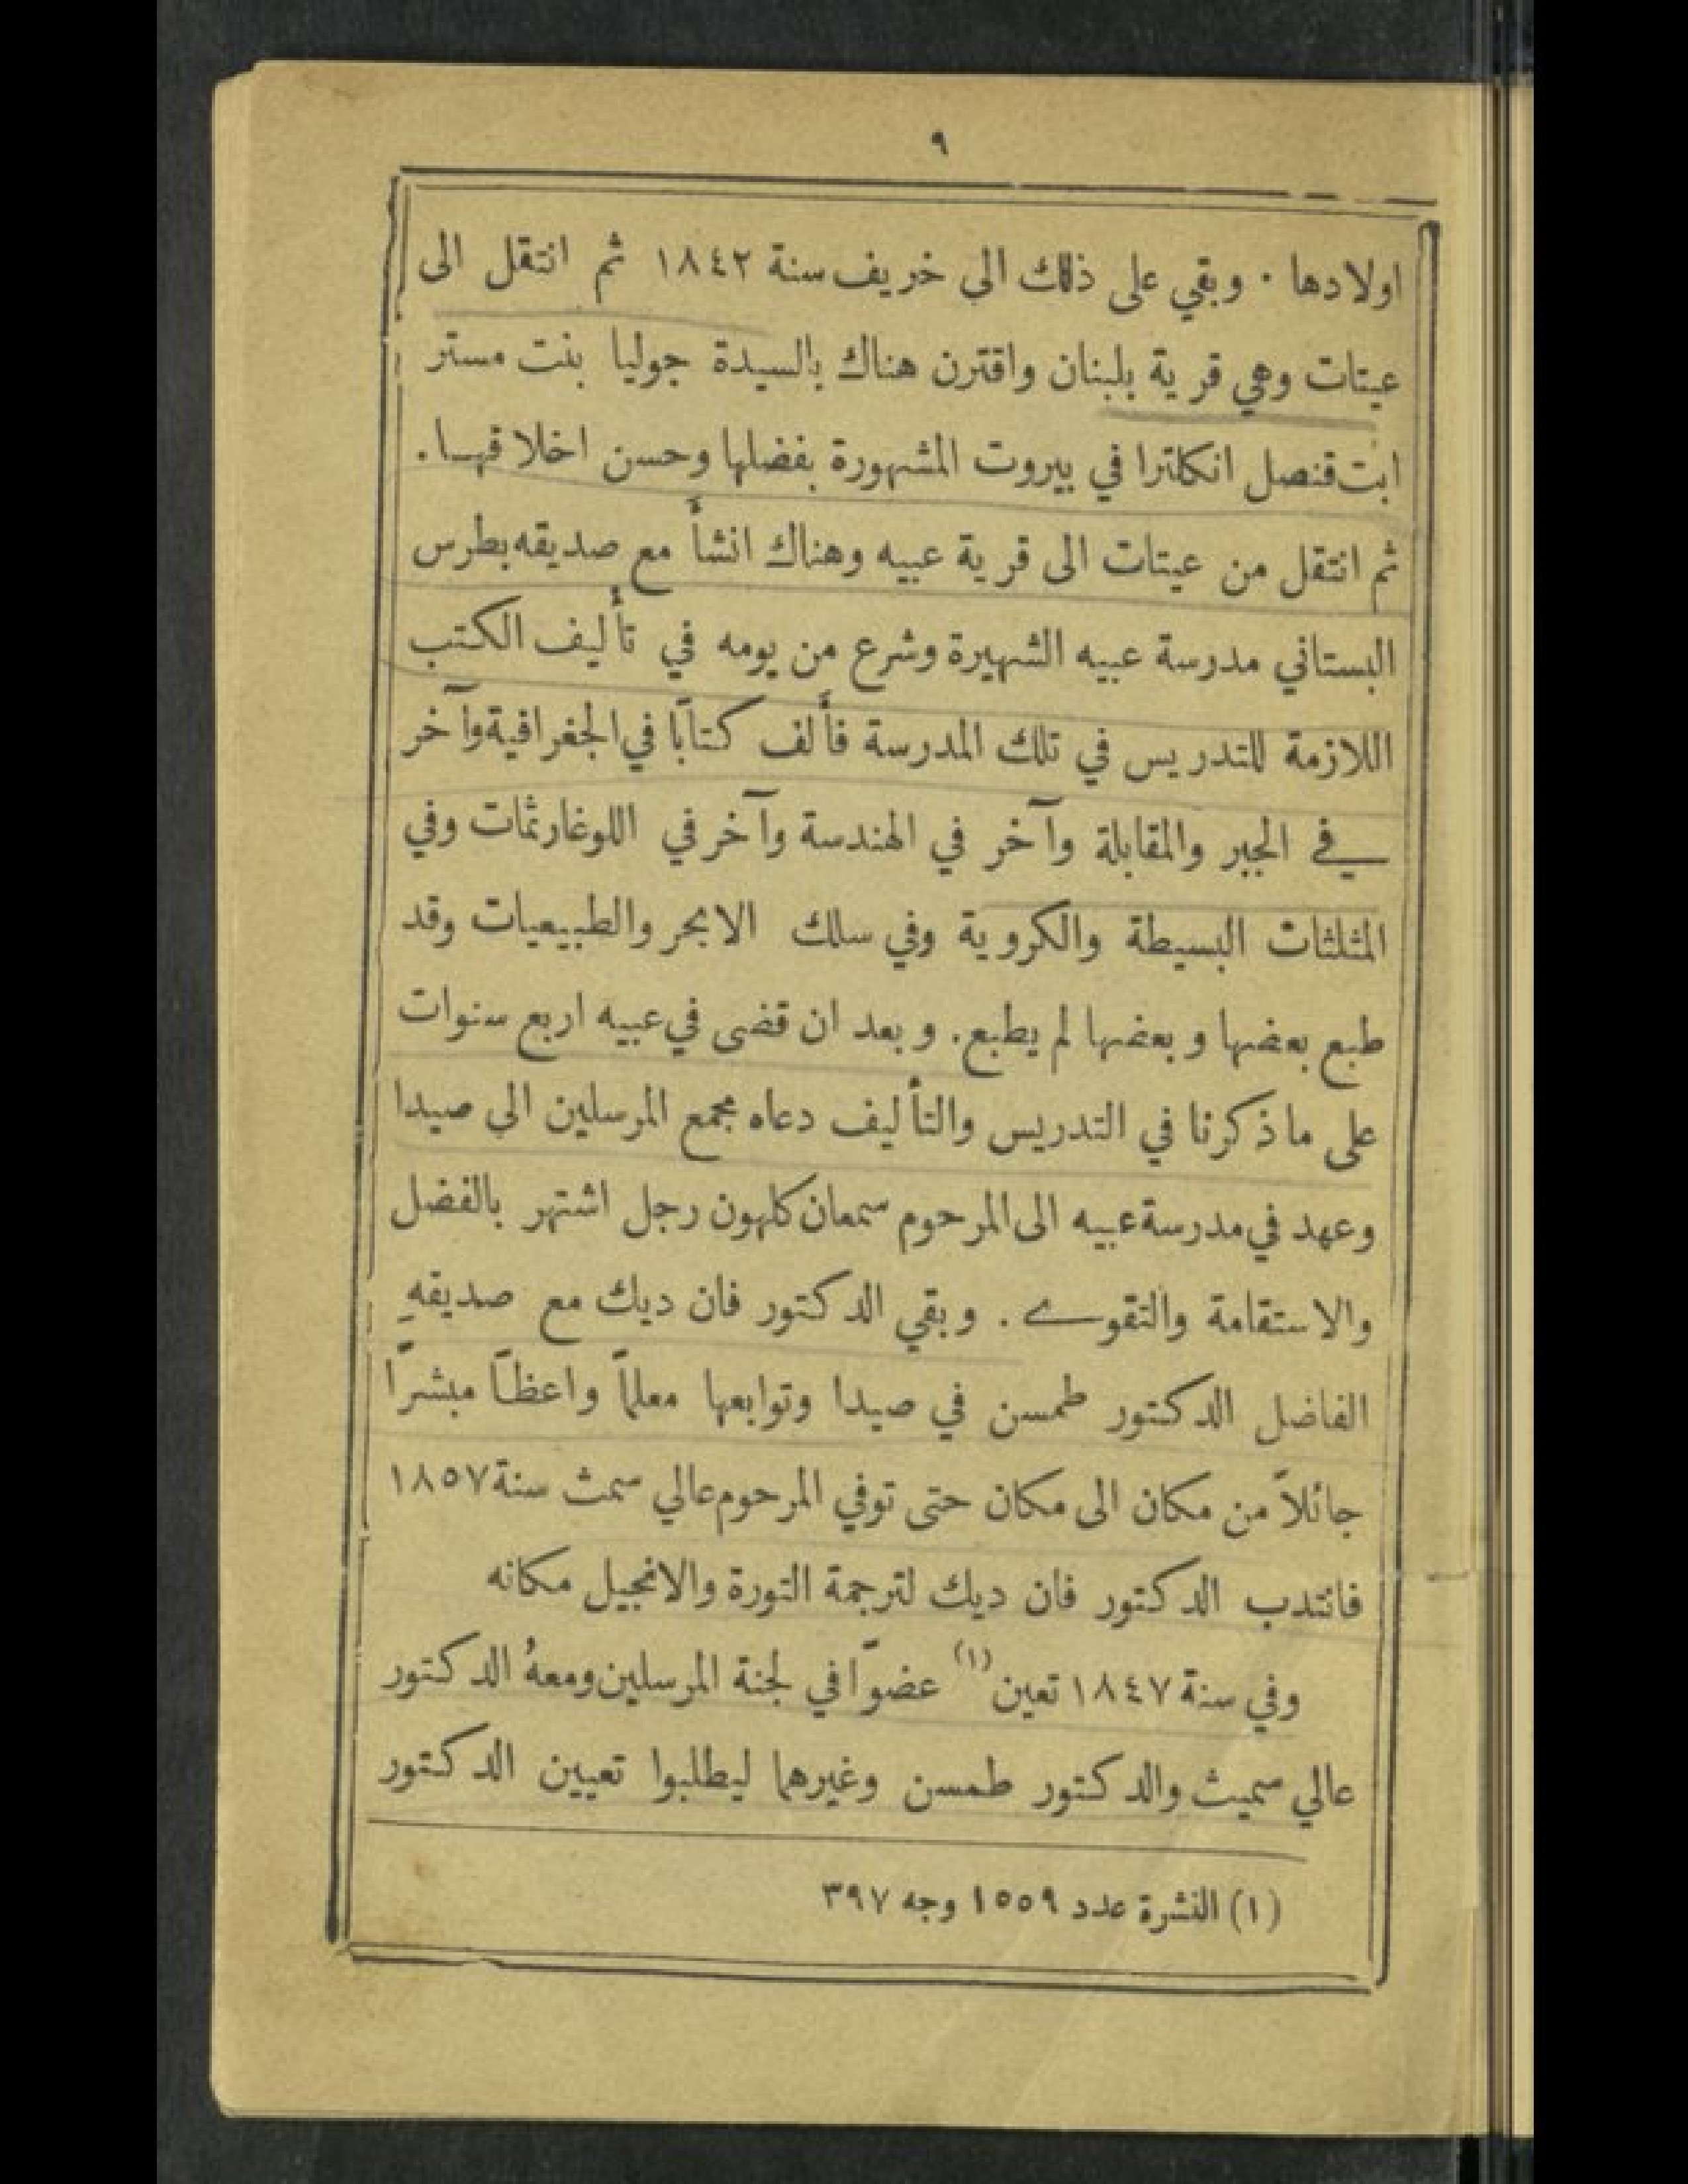 ٩
اولادها · وبقي على ذلك الى خريف سنة ١٨٤٢ ثم انتقل الى
عيتات وهي قرية بلبنان واقترن هناك بالسيدة جوليا بنت مستر
ابت قنصل انكلترا في بيروت المشهورة بفضلها وحسن اخلاقها.
ثم انتقل من عيتات الى قرية عبيه وهناك انشأ مع صديقه بطرس
البستاني مدرسة عبيه الشهيرة وشرع من يومه في تأليف الكتب
اللازمة للتدريس في تلك المدرسة فألف كتابًا في الجغرافية وآخر
في الجبر والمقابلة وآخر في الهندسة وآخر في اللوغارثمات وفي
المثلثات البسيطة والكروية وفي سلك الابحر والطبيعيات وقد
طبع بعضها وبعضها لم يطبع. وبعد ان قضى في عبيه اربع سنوات
على ما ذكرنا في التدريس والتأليف دعاه مجمع المرسلين الى صيدا
وعهد في مدرسة عبيه الى المرحوم سمعان كلهون رجل اشتهر بالفضل
والاستقامة والتقوى. وبقي الدكتور فان ديك مع صديقهِ
الفاضل الدكتور طمسن في صيدا وتوابعها معلمًا واعظًا مبشرًا
جائلاً من مكان الى مكان حتى توفي المرحوم عالي سمث سنة ١٨٥٧
فانتدب الدكتور فان ديك لترجمة التورة والانجيل مكانه
وفي سنة ١٨٤٧ تعين (١) عضوًا في لجنة المرسلين ومعهُ الدكتور
عالي سميث والدكتور طمسن وغيرهما ليطلبوا تعيين الدكتور
(١) النشرة عدد ١٥٥٩ وجه ٣٩٧